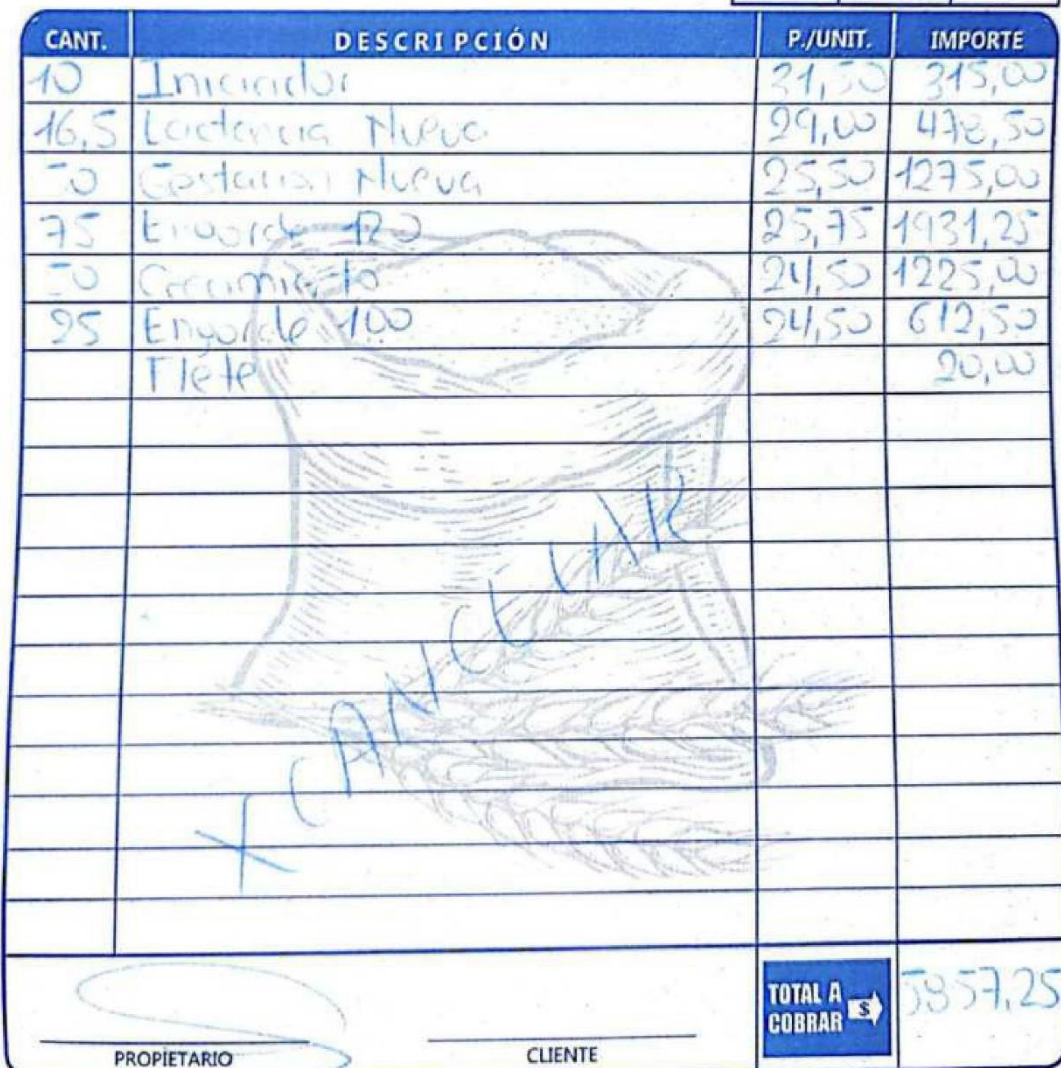 CANT. DESCRIPCIÓN P./UNIT. IMPORTE
10 Iniciador 31,50 315,00
16,5 Lactancia Nueva 29,00 478,50
50 Gestacion Nueva 25,50 1275,00
75 Engorde 120 25,75 1931,25
50 Crecimiento 24,50 1225,00
25 Engorde 100 24,50 612,50
Flete 20,00
X CANCELAR
TOTAL A COBRAR $ 5857,25
PROPIETARIO CLIENTE